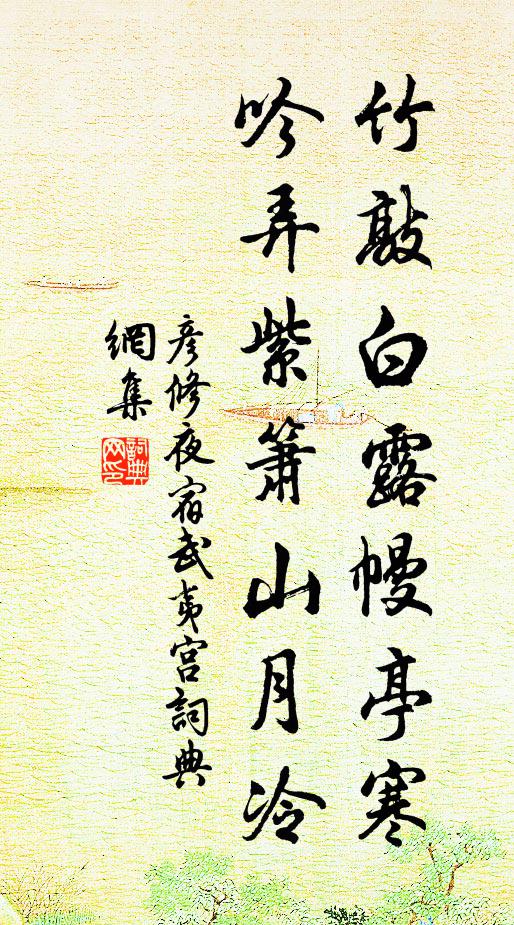 竹敲白露幔亭寒
吟弄紫簫山月冷
彦修夜宿武夷宮詞典
網集
詞典
网印